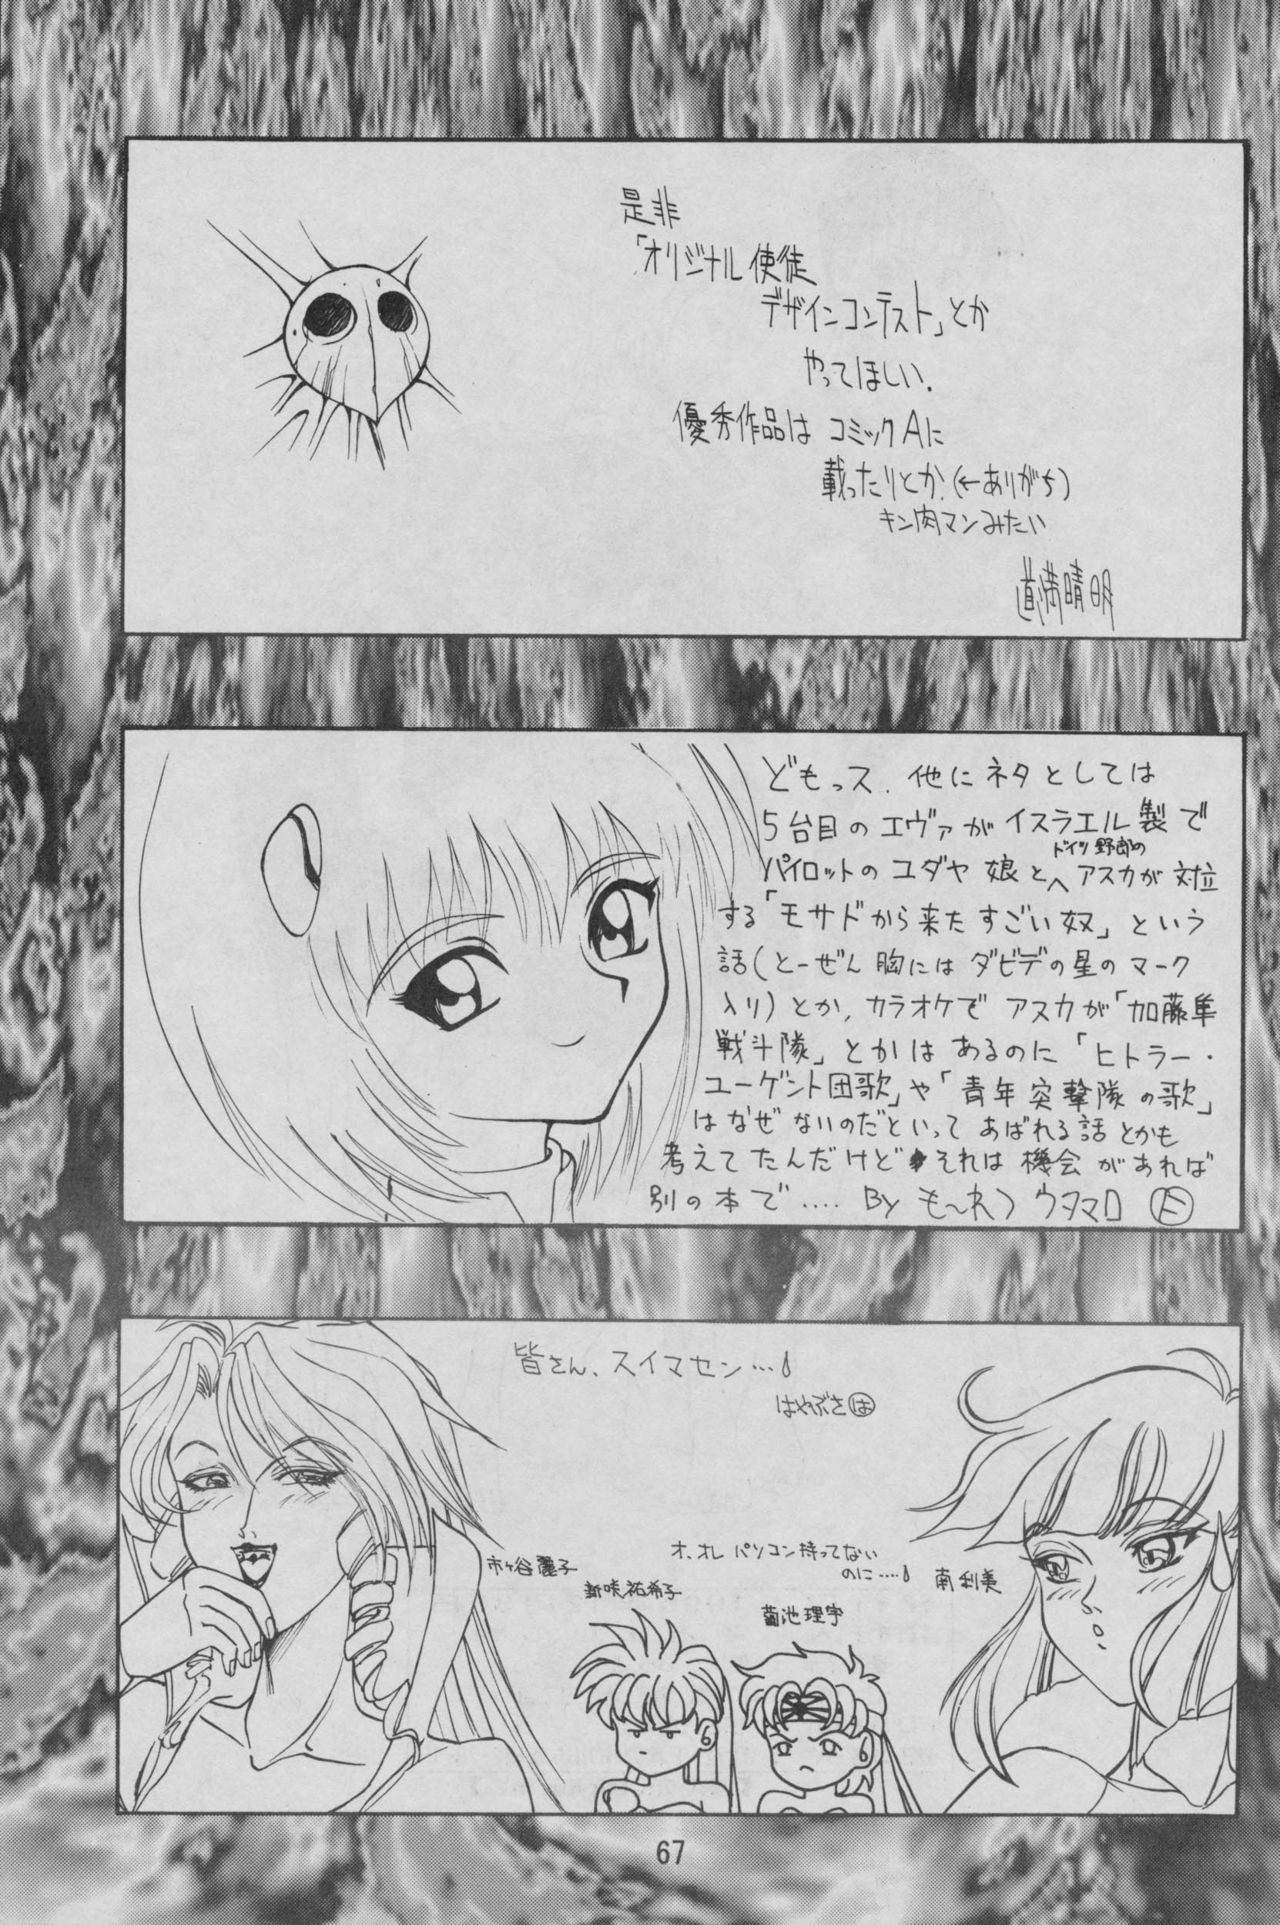 是非
「オリジナル使徒
デザインコンテスト」とか
やってほしい.
優秀作品は コミックAに
載ったりとか.(←ありがち)
キン肉マンみたい
道満晴明
どもっス. 他にネタとしては
5台目のエヴァがイスラエル製で
パイロットのユダヤ娘とヘアスカが対立
ドイツ野郎の
する「モサドから来たすごい奴」という
話(とーぜん胸にはダビデの星のマーク
入り)とか, カラオケでアスカが「加藤隼
戦斗隊」とかはあるのに「ヒトラー・
ユーゲント団歌」や「青年突撃隊の歌」
はなぜないのだといってあばれる話とかも
考えてたんだけど それは機会があれば
別の本で.... By も〜れつウタマロ
皆さん、スイマセン…
はやぶさは
市ヶ谷麗子
新咲祐希子
オ、オレ パソコン持ってない
のに….
菊池理宇
南利美
67